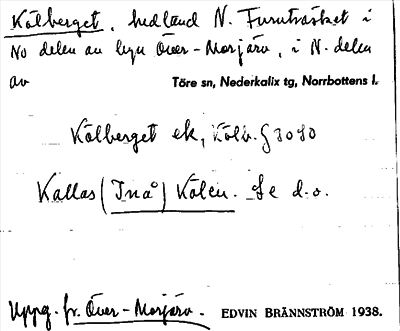 Kölberget, hedland N. Furuträsket i
No delen av byn Över-Morjärv, i N. delen
av Töre sn, Nederkalix tg, Norrbottens l.
Kölberget ek, Kölb. § 3080
Kallas (Inå) Kölen. Se d. o.
Uppg. fr. Över-Morjärv. EDVIN BRÄNNSTRÖM 1938.